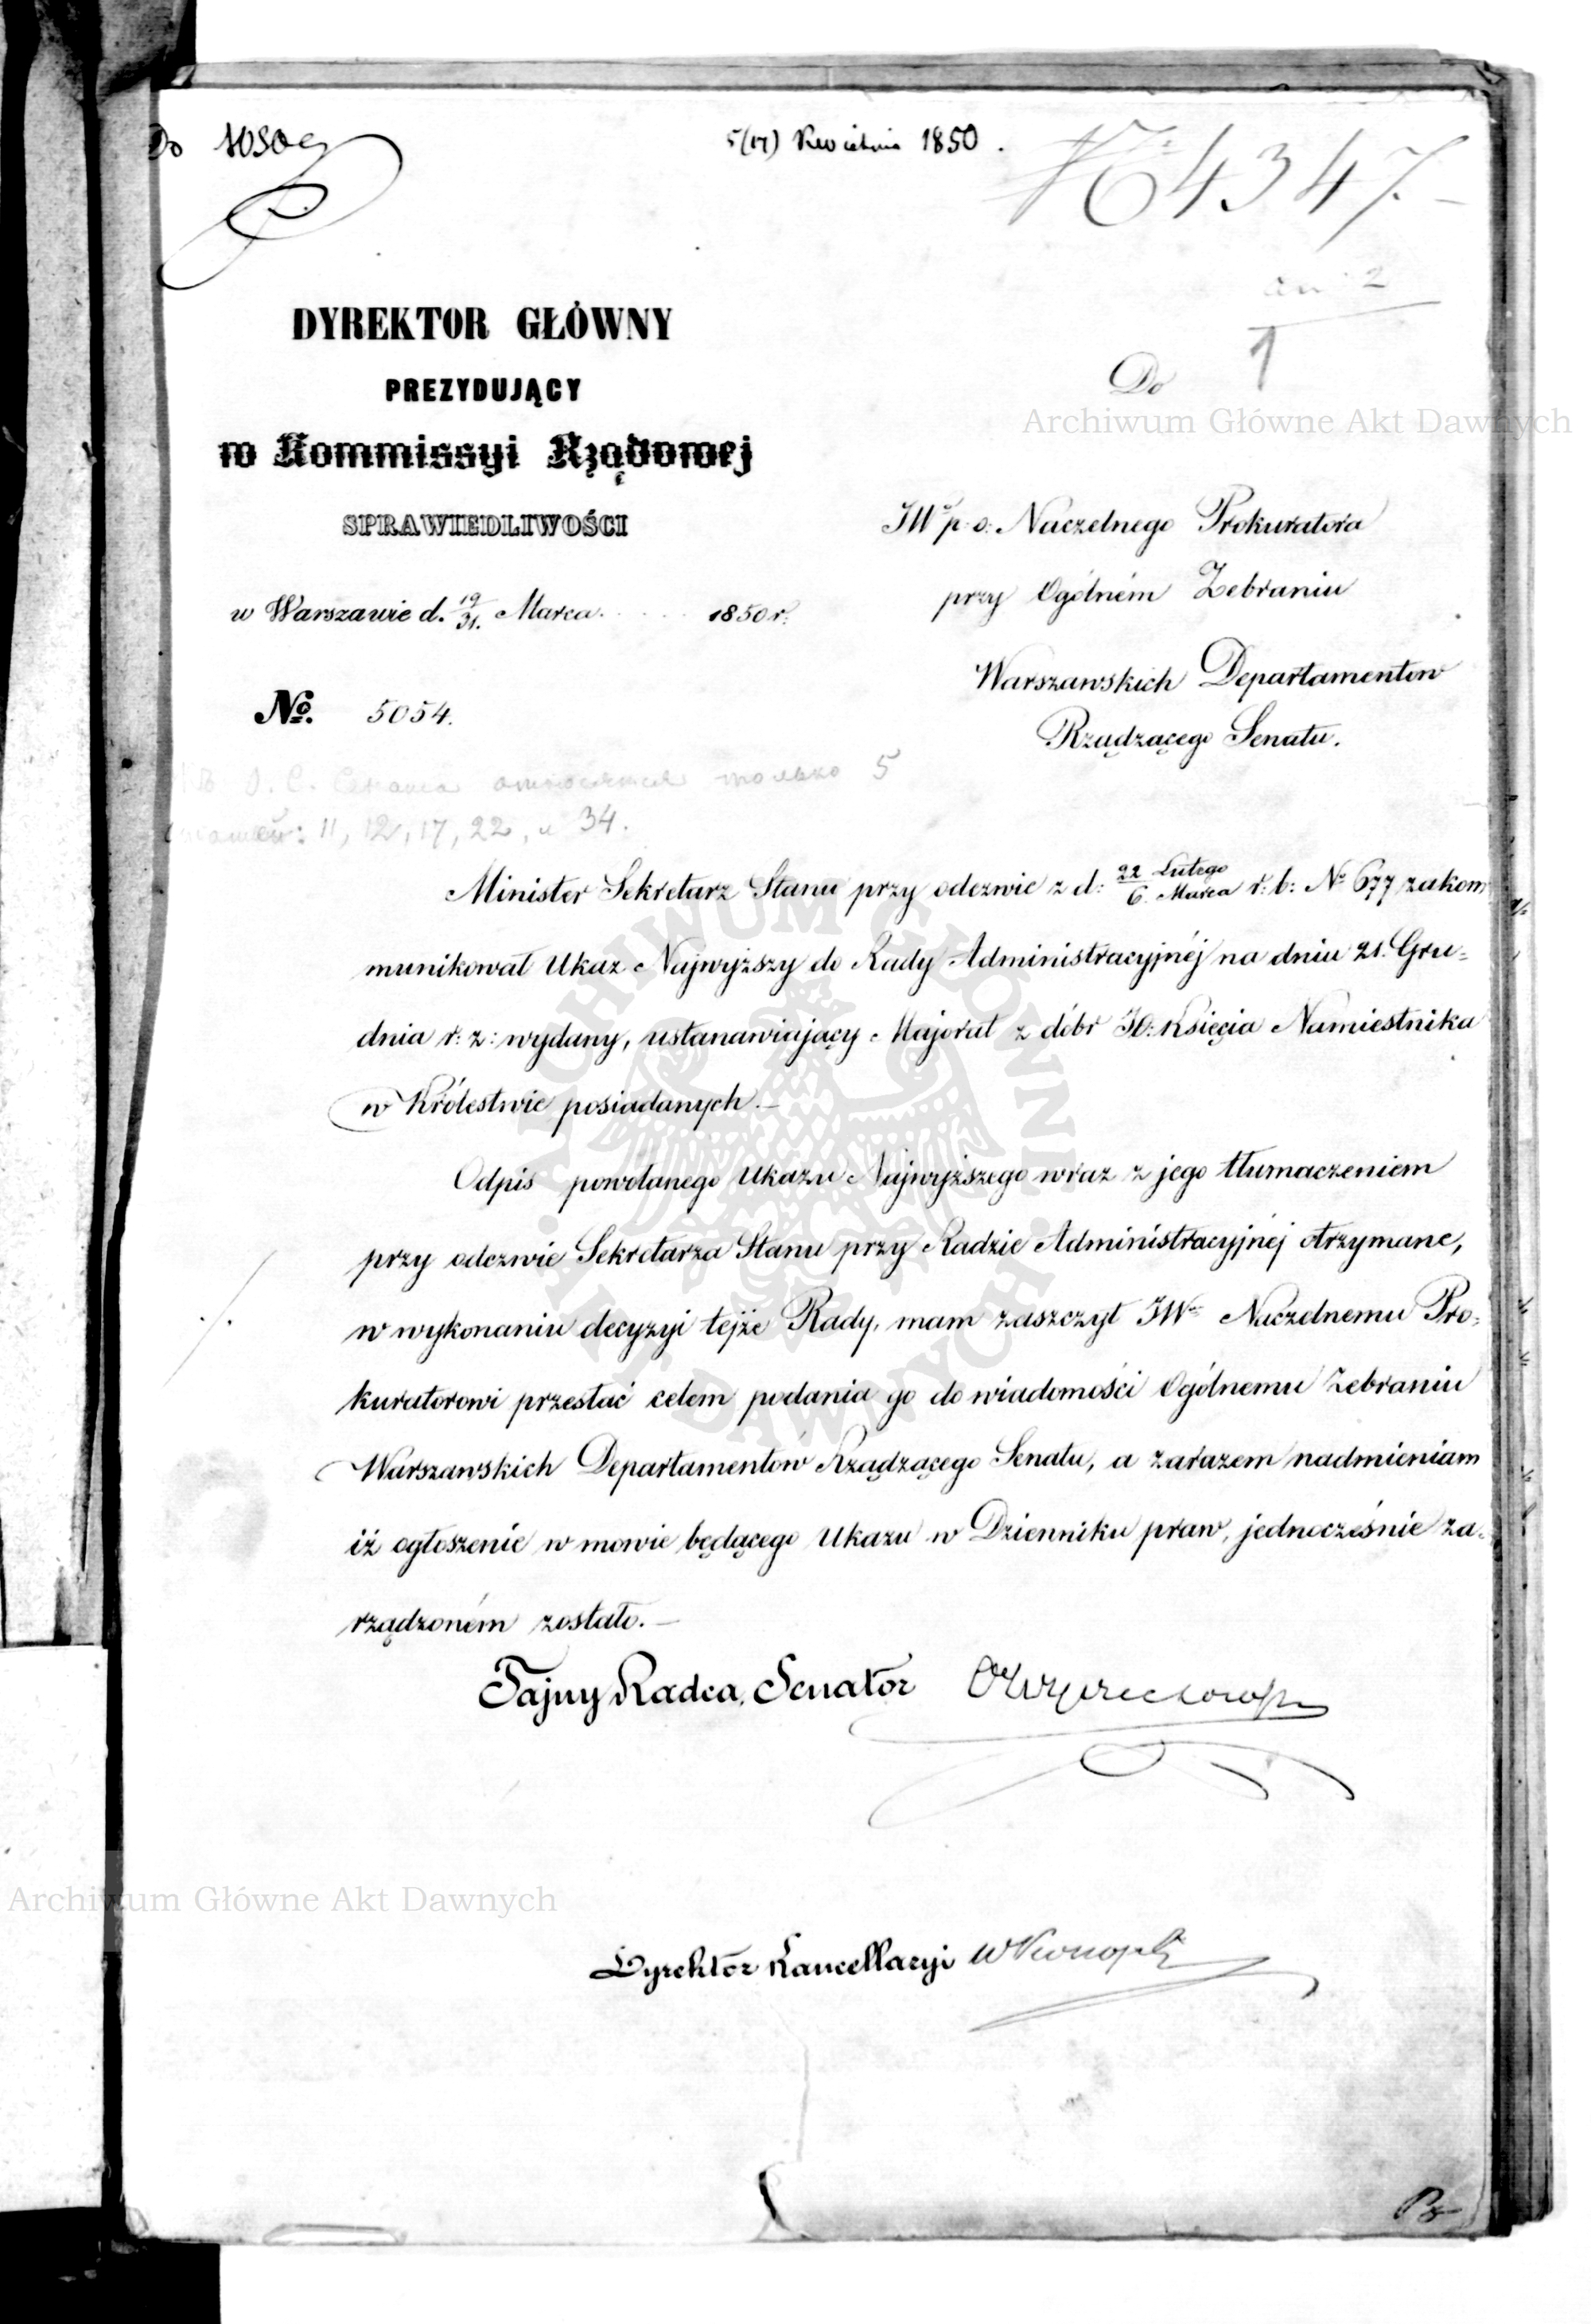 Do 1030
5(17) Kwietnia 1850.
№ 4347.
2
1
DYREKTOR GŁÓWNY
PREZYDUJĄCY
w Kommissyi Rządowej
SPRAWIEDLIWOŚCI
w Warszawie d. 19/31. Marca 1850 r.
No. 5054.
Do
JWo p. o. Naczelnego Prokuratora
przy Ogólném Zebraniu
Warszawskich Departamentow
Rządzącego Senatu.
только 5
11, 12, 17, 22, и 34.
Minister Sekretarz Stanu przy odezwie z d: 22 Lutego/6. Marca r: b: No 677 zakom
munikował Ukaz Najwyższy do Rady Administracyjnéj na dniu 21. Gru=
dnia r: z: wydany, ustanawiający Majorat z dóbr JO: Księcia Namiestnika
w Królestwie posiadanych.—
Odpis powołanego Ukazu Najwyższego wraz z jego tłumaczeniem
przy odezwie Sekretarza Stanu przy Radzie Administracyjnéj otrzymane,
w wykonaniu decyzyi tejże Rady, mam zaszczyt JWu Naczelnemu Pro=
kuratorowi przesłać celem podania go do wiadomości Ogólnemu Zebraniu
Warszawskich Departamentów Rządzącego Senatu, a zarazem nadmieniam
iż ogłoszenie w mowie będącego Ukazu w Dzienniku praw, jednocześnie za=
rządzoném zostało.—
Tajny Radca, Senator
Dyrektor Kancellaryi
Archiwum Główne Akt Dawnych
Archiwum Główne Akt Dawnych
ARCHIWUM GŁÓWNE AKT DAWNYCH